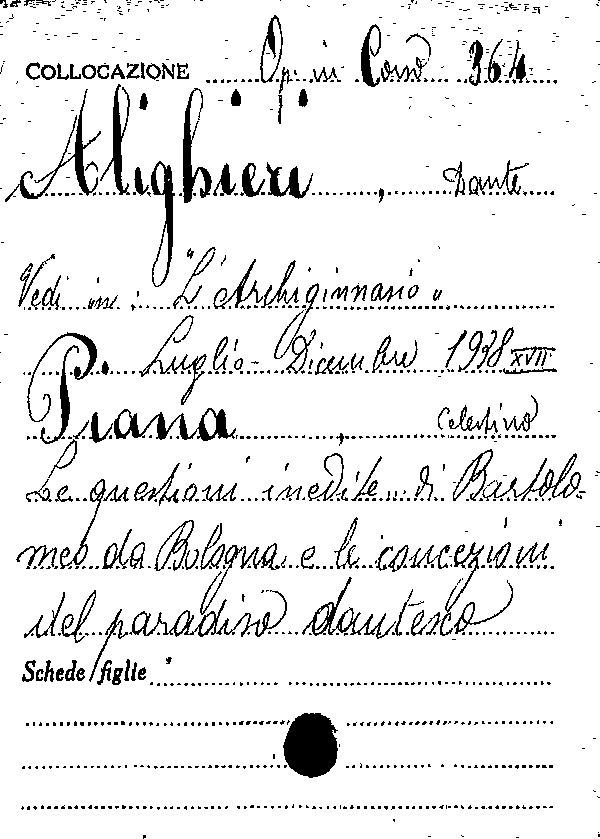 COLLOCAZIONE Op. in Cons 364
Alighieri, Dante
Vedi in: "L'Archiginnasio"
Luglio-Dicembre 1938 XVII
Piana, Celestino
Le questioni inedite di Bartolo-
meo da Bologna e le concezioni
del paradiso dantesco
Schede figlie